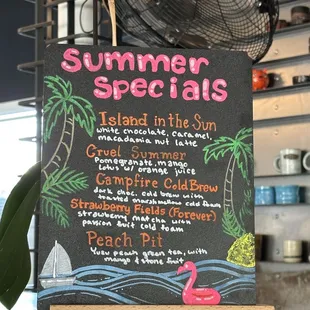 Summer
Specials
Island in the Sun
white chocolate, caramel,
macadamia nut latte
Cruel Summer
Pomegranate, mango
lotus w/ orange juice
Campfire Cold Brew
dark choc. cold brew with
toasted marshmallow cold foam
Strawberry Fields (Forever)
strawberry matcha with
passion fruit cold foam
Peach Pit
Yuzu peach green tea, with
mango & stone fruit